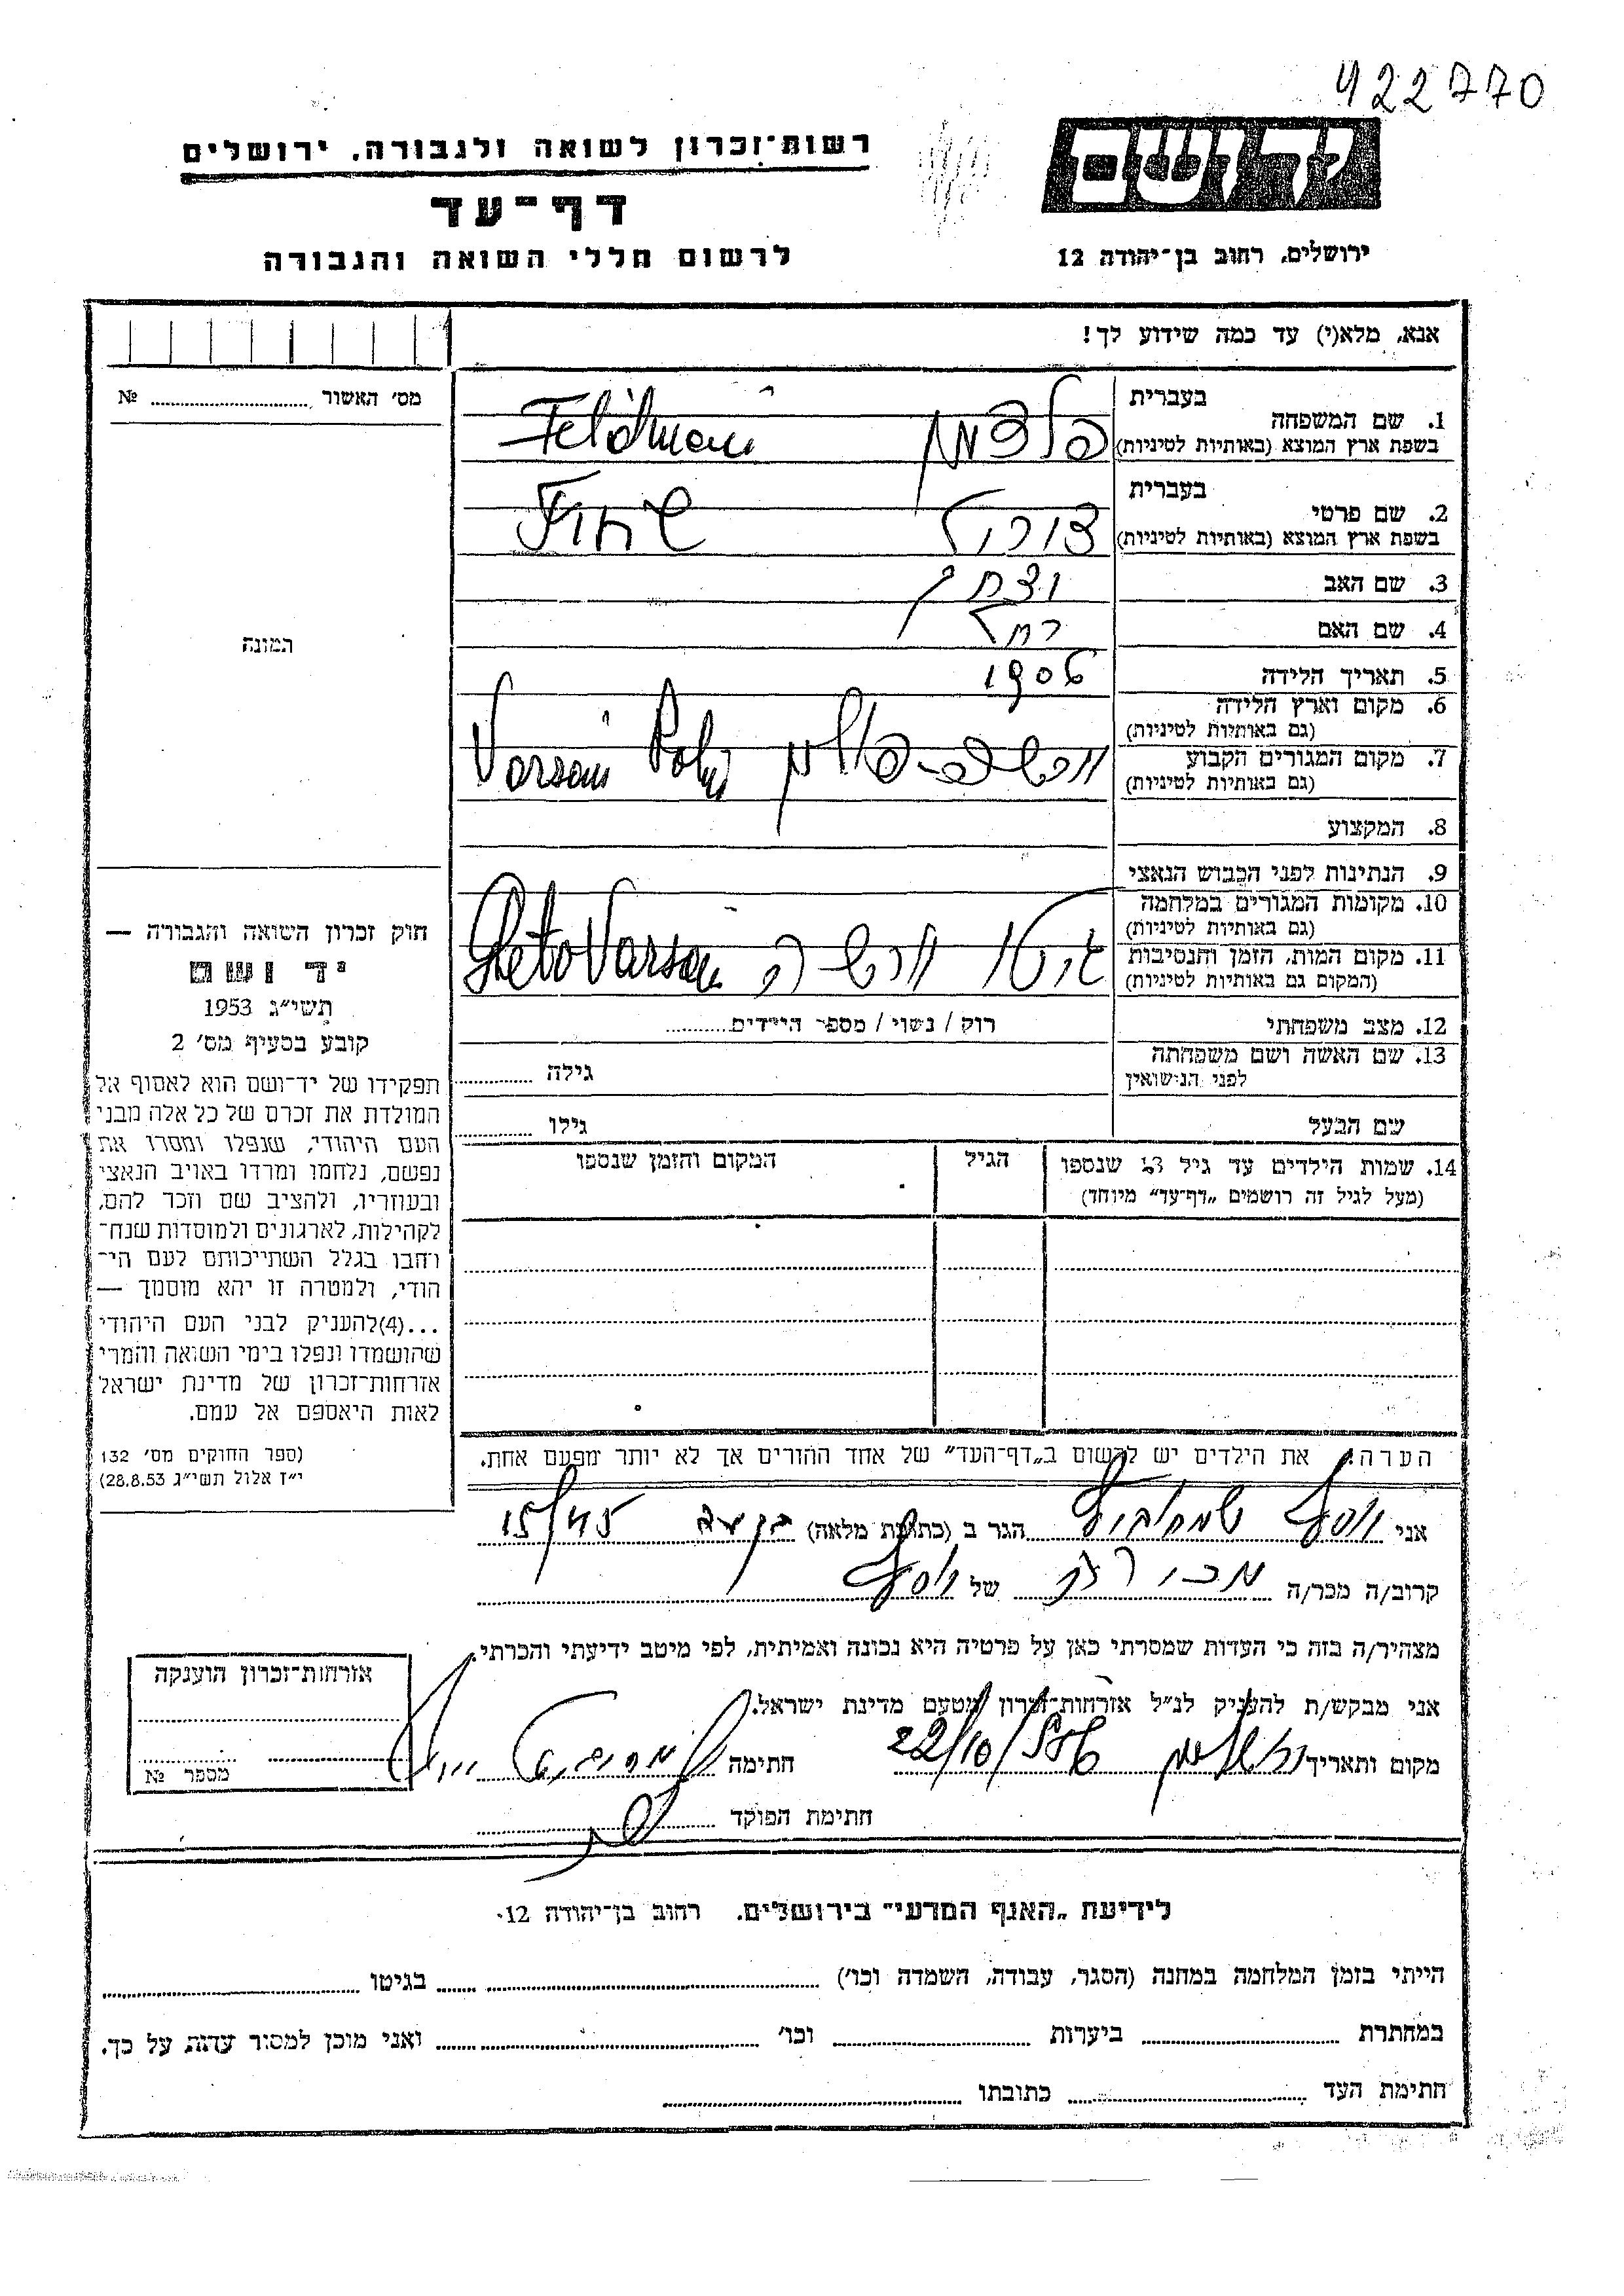 422770
רשות־זכרון לשואה ולגבורה, ירושלים
ידושם
דף־עד
לרשום חללי השואה והגבורה
ירושלים, רחוב בן־יהודה 12
אנא, מלא(י) עד כמה שידוע לך!
מס׳ האשור № 
1. שם המשפחה
בעברית
בשפת ארץ המוצא (באותיות לטיניות)
פלדמן Feldman
2. שם פרטי
בעברית
בשפת ארץ המוצא (באותיות לטיניות)
3. שם האב
4. שם האם רחל
5. תאריך הלידה 1906
6. מקום וארץ הלידה
(גם באותיות לטיניות)
7. מקום המגורים הקבוע
(גם באותיות לטיניות)
ורשה-פולין
8. המקצוע
9. הנתינות לפני הכבוש הנאצי
10. מקומות המגורים במלחמה
(גם באותיות לטיניות)
11. מקום המות, הזמן והנסיבות
(המקום גם באותיות לטיניות)
גיטו ורשה
12. מצב משפחתי רוק / נשוי / מספר הילדים
13. שם האשה ושם משפחתה
לפני הנישואין
גילה
שם הבעל גילו
14. שמות הילדים עד גיל 13 שנספו
(מעל לגיל זה רושמים „דף־עד״ מיוחד)
הגיל
המקום והזמן שנספו
הערה: את הילדים יש לרשום ב„דף־העד״ של אחד ההורים אך לא יותר מפעם אחת.
תמונה
חוק זכרון השואה והגבורה —
יד ושם
תשי״ג 1953
קובע בסעיף מס׳ 2
תפקידו של יד־ושם הוא לאסוף אל
המולדת את זכרם של כל אלה מבני
העם היהודי, שנפלו ומסרו את
נפשם, נלחמו ומרדו באויב הנאצי
ובעוזריו, ולהציב שם וזכר להם,
לקהילות, לארגונים ולמוסדות שנח־
רחבו בגלל השתייכותם לעם הי־
הודי, ולמטרה זו יהא מוסמך —
...(4)להעניק לבני העם היהודי
שהושמדו ונפלו בימי השואה והמרי
אזרחות־זכרון של מדינת ישראל
לאות היאספם אל עמם.
(ספר החוקים מס׳ 132
י״ז אלול תשי״ג 28.8.53)
אני הגר ב (כתובת מלאה) 15/45
קרוב/ה מכר/ה של
מצהיר/ה בזה כי העדות שמסרתי כאן על פרטיה היא נכונה ואמיתית, לפי מיטב ידיעתי והכרתי.
אני מבקש/ת להעניק לנ״ל אזרחות־זכרון מטעם מדינת ישראל.
מקום ותאריך 22/10/ חתימה
חתימת הפוקד
אזרחות־זכרון הוענקה
מספר №
לידיעת „האגף המדעי״ בירושלים, רחוב בן־יהודה 12.
הייתי בזמן המלחמה במחנה (הסגר, עבודה, השמדה וכו׳) בגיטו
במחתרת ביערות וכו׳ ואני מוכן למסור עדות על כך.
חתימת העד כתובתו